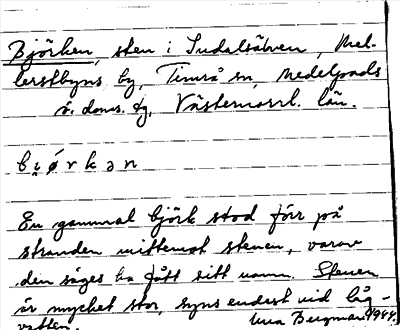 Björken, sten i Indalsälven, Mel-
lerstbyns by, Timrå sn, Medelpads
ö. doms. tg, Västernorrl. län.
b i̯ ǿ r k ə n
En gammal björk stod förr på
stranden mittemot stenen, varav
den säges ha fått sitt namn. Stenen
är mycket stor, syns endast vid låg-
vatten. Bergman 1944.